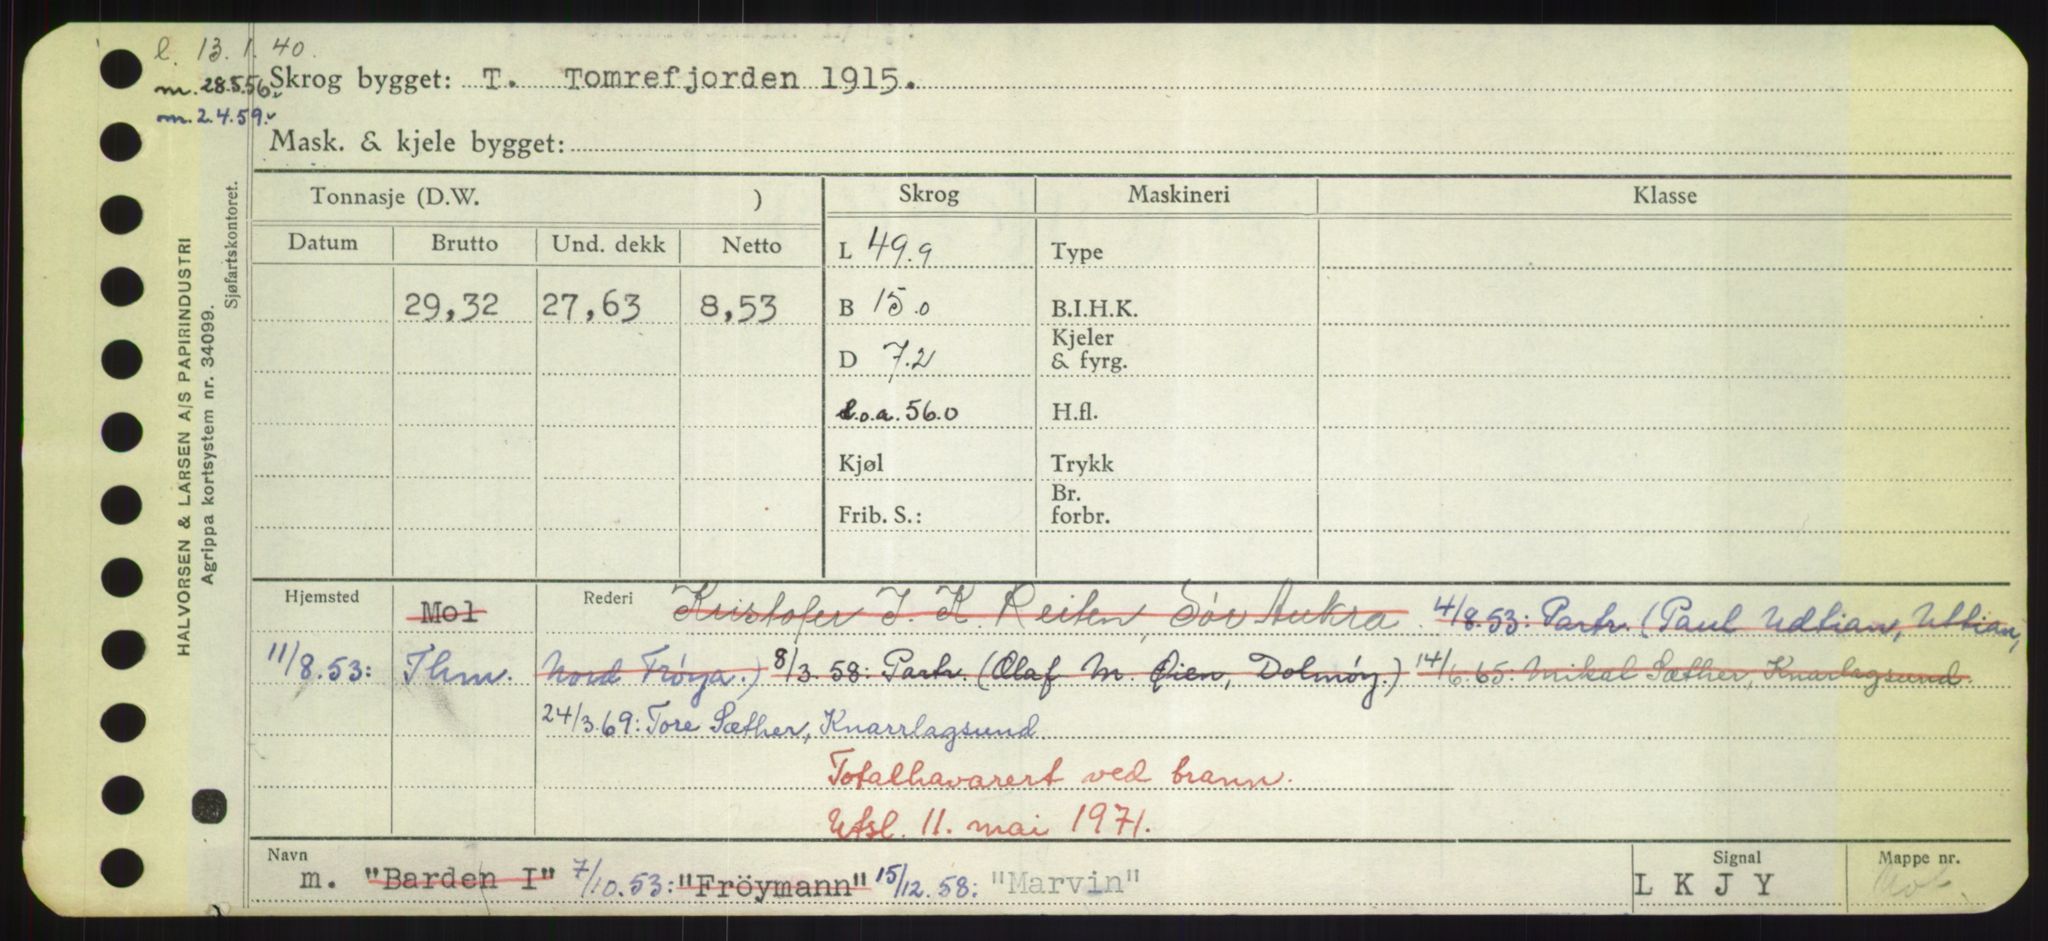 l. 13.1.40.
m. 28.5.56.
m. 2.4.59.
Skrog bygget: T. Tomrefjorden 1915.
Mask. & kjele bygget:
HALVORSEN & LARSEN A/S PAPIRINDUSTRI
Agrippa kortsystem nr. 34099.
Sjøfartskontoret.
Tonnasje (D.W. ) Skrog Maskineri Klasse
Datum Brutto Und. dekk Netto
L 49.9 Type
29,32 27,63 8,53 B 15.0 B.I.H.K.
D 7.2 Kjeler & fyrg.
l.o.a. 56.0 H.fl.
Kjøl Trykk
Frib. S.: Br. forbr.
Hjemsted Mol Rederi Kristofer J. K. Reiten, Sör Aukra. 4/8.53: Partr. (Paul Udtian, Uttian,
11/8.53: Thm. Nord Fröya.) 8/3.58: Partr. (Olaf M. Øien, Dolmöy.) 14/6.65: Mikal Sæther, Knarlagsund.
24/3.69: Tore Sæther, Knarrlagsund
Totalhavarert ved brann.
Utsl. 11. mai 1971.
Navn Signal Mappe nr.
m. "Barden I" 7/10.53: "Fröymann" 15/12.58: "Marvin" L K J Y Mol.